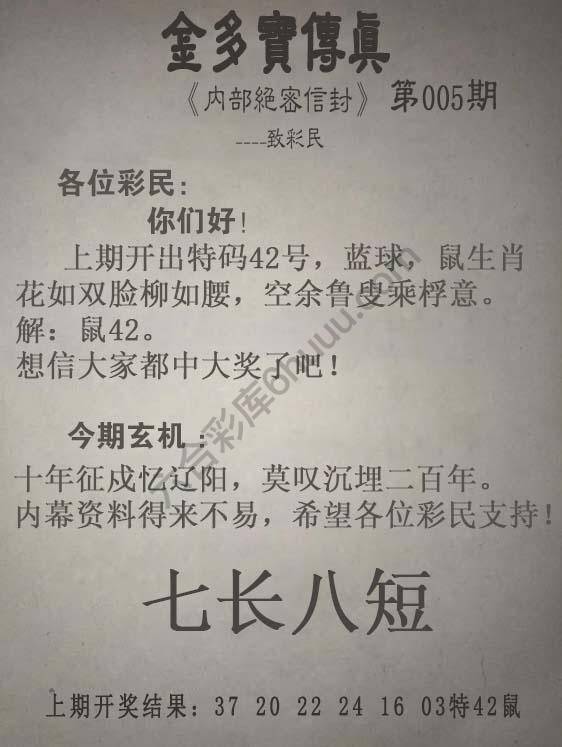 金多寶傳眞
《内部絕密信封》 第005期
----致彩民
各位彩民：
你们好！
上期开出特码42号，蓝球，鼠生肖
花如双脸柳如腰，空余鲁叟乘桴意。
解：鼠42。
想信大家都中大奖了吧！
今期玄机：
十年征戍忆辽阳，莫叹沉埋二百年。
内幕资料得来不易，希望各位彩民支持！
七长八短
上期开奖结果：37 20 22 24 16 03特42鼠
六合彩库6huuu.com